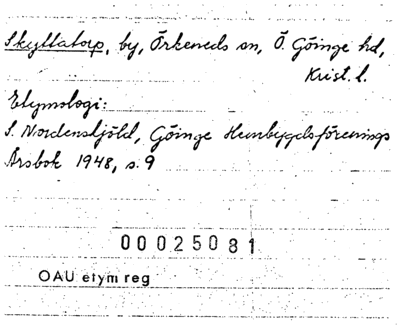 Skyttatorp, by, Örkeneds sn, Ö. Göinge hd,
Krist. l.
Etymologi:
S. Nordenskjöld, Göinge Hembygdsförenings
Årsbok 1948, s. 9
00025081
OAU etym reg